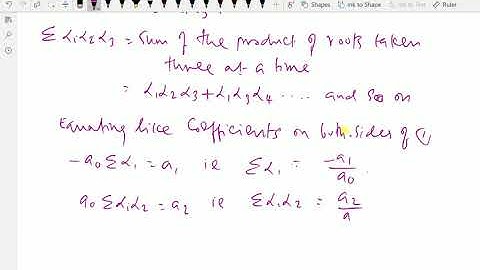 Shapes Ink to Shape Ruler
Σα₁α₂α₃ = Sum of the product of roots taken
three at a time
= α₁α₂α₃+α₁α₃α₄ .... and so on
Equating like Coefficients on both sides of ①
-a₀Σα₁ = a₁ ie Σα₁ = -a₁/a₀.
a₀Σα₁α₂ = a₂ ie Σα₁α₂ = a₂/a